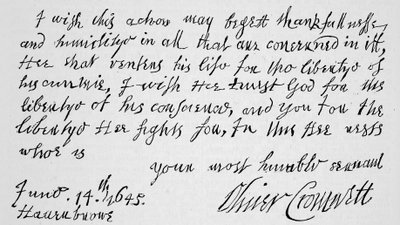 I wish this action may begett thankfullnesse
and humilitye in all that are concerned in itt,
Hee that venters his life for the libertye of
his cuntrie, I wish Hee trust God for the
libertye of his conscience, and you for the
libertye Hee fights for, In this Hee rests
whoe is
your most humble servant
June. 14.th 1645.
Haverbrowe
Oliver Cromwell